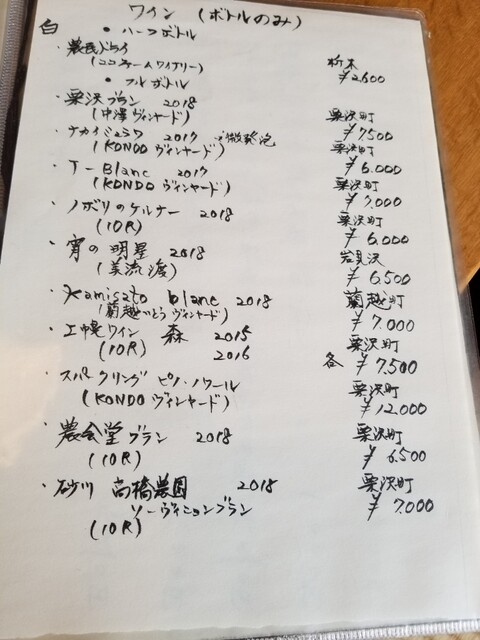 ワイン (ボトルのみ)
白 • ハーフボトル
・農民ドライ 栃木
(ココファームワイナリー) ¥2,600
• フルボトル
・栗沢ブラン 2018 栗沢町
(中澤ヴィンヤード) ¥7500
・ナカイミサワ 2017 微発泡 栗沢町
(KONDOヴィンヤード) ¥6.000
・Blanc 2017 栗沢町
(KONDOヴィンヤード) ¥7,000
・ノボリのケルナー 2018 栗沢町
(10R) ¥6,000
・宵の明星 2018 岩見沢
(美流渡) ¥6,500
・Kamisato blanc 2018 蘭越町
(蘭越 ヴィンヤード) ¥7,000
・上幌ワイン 森 2015 栗沢町
(10R) 2016 各 ¥7,500
・スパークリング ピノ・ノワール 栗沢町
(KONDO ヴィンヤード) ¥12,000
・農会堂ブラン 2018 栗沢町
(10R) ¥6,500
・砂川 高橋農園 2018 栗沢町
ソーヴィニョンブラン ¥7,000
(10R)